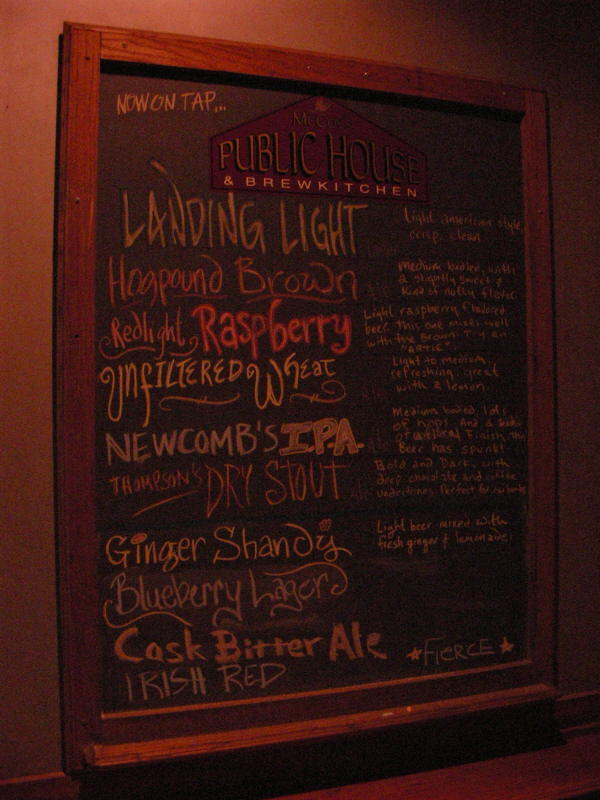 NOW ON TAP...
PUBLIC HOUSE
& BREWKITCHEN
LANDING LIGHT
Light american style,
crisp, clean
Hogpound Brown
Medium bodied, with
a slightly sweet &
kind of nutty flavor
Redlight Raspberry
Light raspberry flavored
beer. this one mixes well
with the Brown. Try an
UnFILTERED WHEAT
Light to medium,
refreshing. great
with a lemon.
NEWCOMB'S I.P.A.
Medium bodied, lots
of hops. And a
Finish. This
Beer has spunk!
THOMPSON'S DRY STOUT
Bold and Dark, with
deep chocolate and coffee
undertones. Perfect for
Ginger Shandy
Light beer mixed with
fresh ginger & lemonade!
Blueberry Lager
Cask Bitter Ale
★FIERCE★
IRISH RED